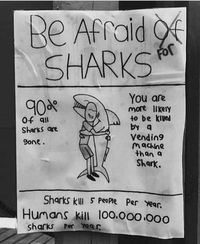 Be Afraid Of
For
SHARKS
90%
of all
Sharks are
gone.
You are
more likely
to be killed
by a
Vending
machine
than a
Shark.
Sharks kill 5 People Per Year.
Humans kill 100,000,000
sharks Per Year.